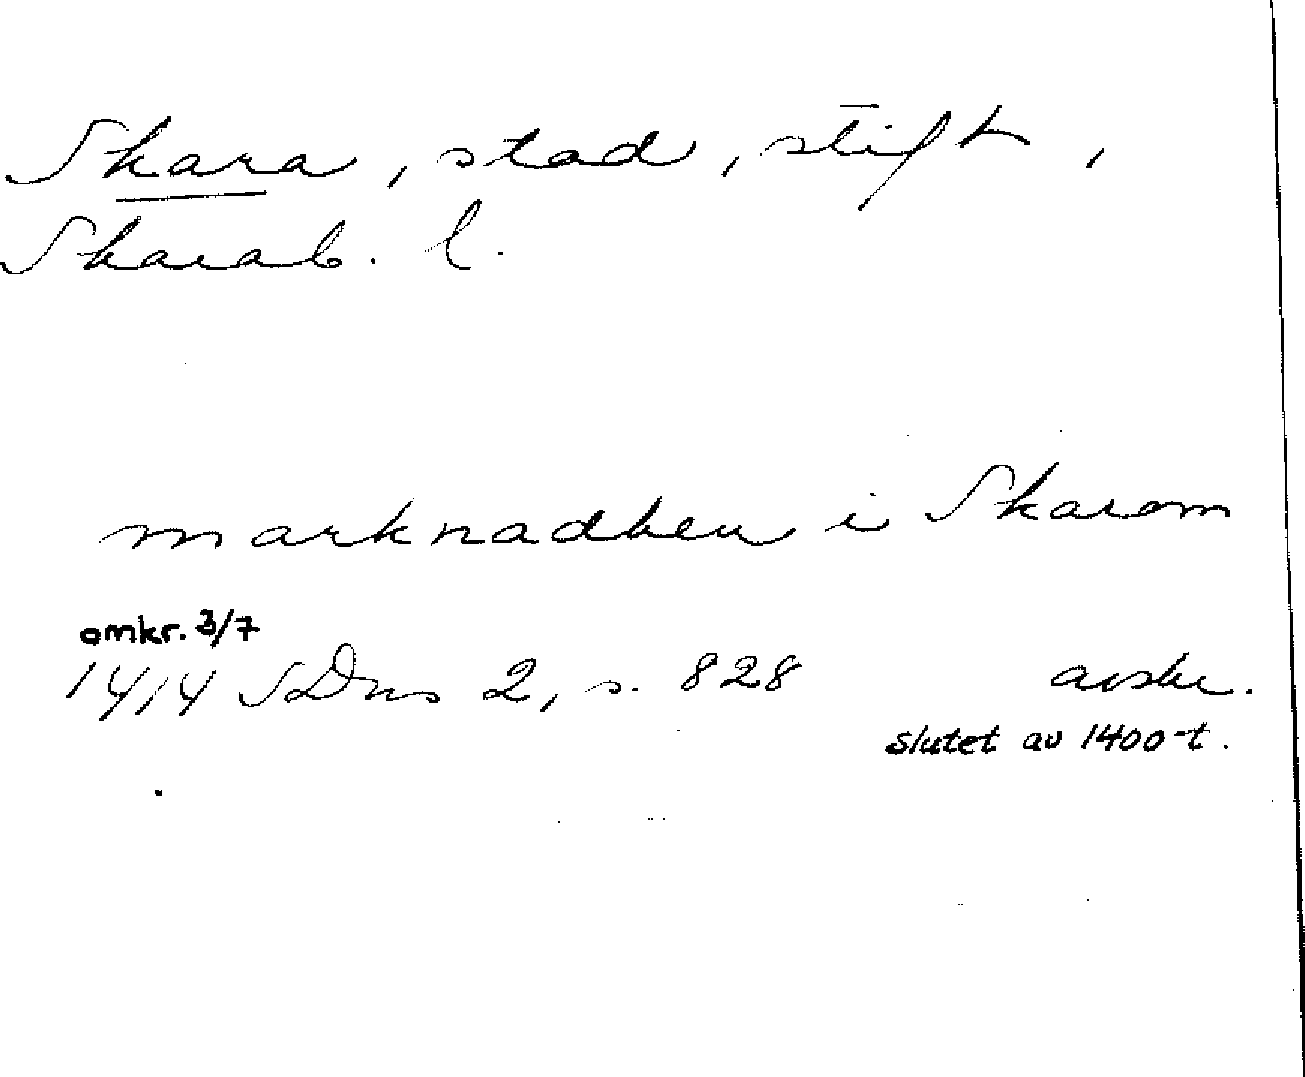 Skara, stad, stift,
Skarab. l.
marknadhen i Skarom
omkr. 3/7
1414 SDns 2, s. 828 avskr.
slutet av 1400-t.